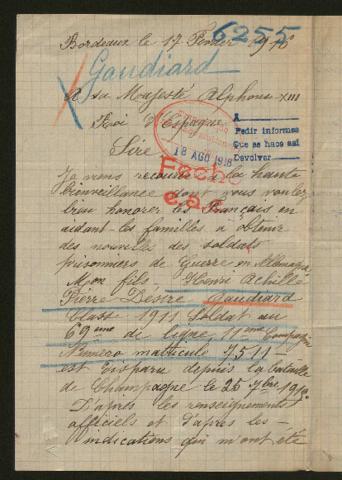 6255
Bordeaux le 17 Février 1916
Gaudiard
A sa Majesté Alphonse XIII
Roi d'Espagne
A
Pedir informes
Que se hace así
Devolver
Sire
18 AGO 1916
Fecho
Je viens recourir à la haute
bienveillance dont vous voulez
bien honorer les Français en
aidant les familles à obtenir
des nouvelles des soldats
prisonniers de Guerre en Allemagne
Mon fils, Henri Achille
Pierre Désiré Gaudiard
Classe 1911 Soldat au
69ème de ligne, 11ème Compagnie
Numéro matricule 7511
est disparu depuis la bataille
de Champagne le 25 7bre 1915
D'après les renseignements
officiels et d'après les
indications qui m'ont été